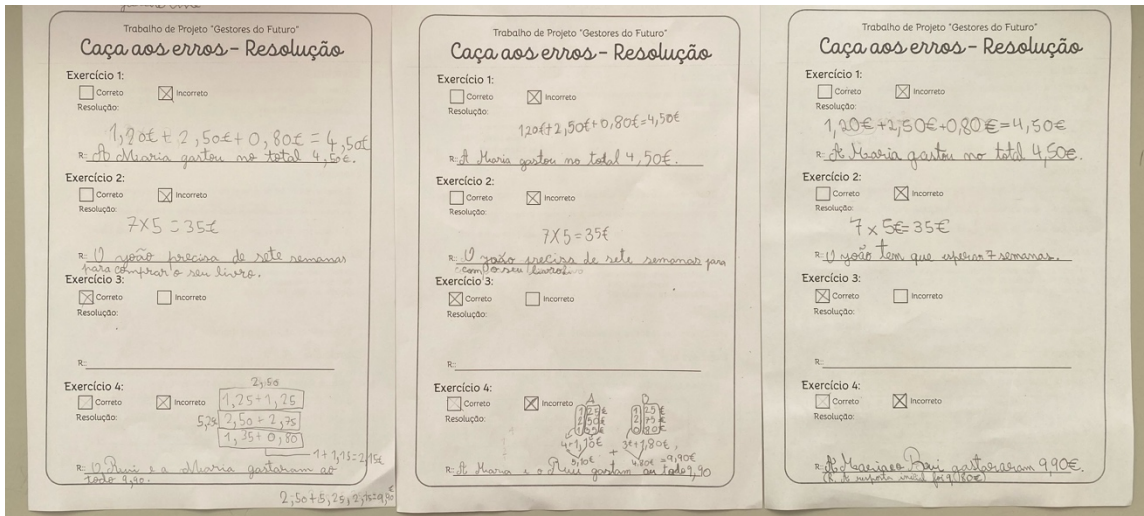 Trabalho de Projeto "Gestores do Futuro"
Caça aos erros – Resolução
Exercício 1:
Correto Incorreto
Resolução:
1,20€ + 2,50€ + 0,80€ = 4,50€
R: A Maria gastou no total 4,50€.
Exercício 2:
Correto Incorreto
Resolução:
7X5 = 35€
R: O João precisa de sete semanas
para comprar o seu livro.
Exercício 3:
Correto Incorreto
Resolução:
R:
Exercício 4:
2,50
Correto Incorreto
1,25+1,25
Resolução:
5,25 2,50 + 2,75
1,35+0,80
1+1,15=2,15€
R: O Rui e a Maria gastaram ao
todo 9,90.
2,50+5,25,2,15=9,90€
Trabalho de Projeto "Gestores do Futuro"
Caça aos erros – Resolução
Exercício 1:
Correto Incorreto
Resolução:
1,20€+2,50€+0,80€=4,50€
R: A Maria gastou no total 4,50€.
Exercício 2:
Correto Incorreto
Resolução:
7X5=35€
R: O João precisa de sete semanas para
o seu
Exercício 3:
Correto Incorreto
Resolução:
R:
Exercício 4:
A B
Correto Incorreto
Resolução:
1,25€ 1,25€
2,50€ 2,75€
1,35€ 0,80€
4+1,10€ 3€+1,80€
+
5,10€ 4,80€ =9,90€
R: A Maria e o Rui gastam ao todo 9,90
Trabalho de Projeto "Gestores do Futuro"
Caça aos erros – Resolução
Exercício 1:
Correto Incorreto
Resolução:
1,20€+2,50€+0,80€=4,50€
R: A Maria gastou no total 4,50€.
Exercício 2:
Correto Incorreto
Resolução:
7 x 5€=35€
R: O João tem que esperar 7 semanas.
Exercício 3:
Correto Incorreto
Resolução:
R:
Exercício 4:
Correto Incorreto
Resolução:
R: A Maria e o Rui gastararam 9,90€.
(R. da resposta inicial foi 9,80€)